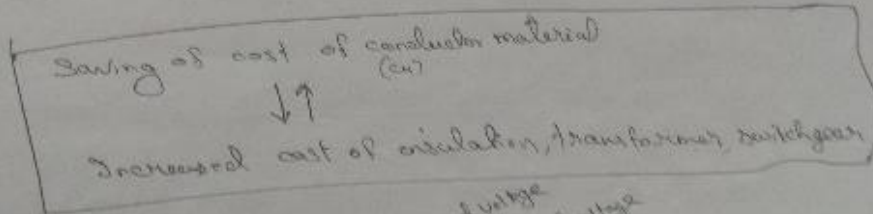 Saving of cost of conductor material
(Cu)
↓↑
Increased cost of insulation, transformer, switchgear
voltage